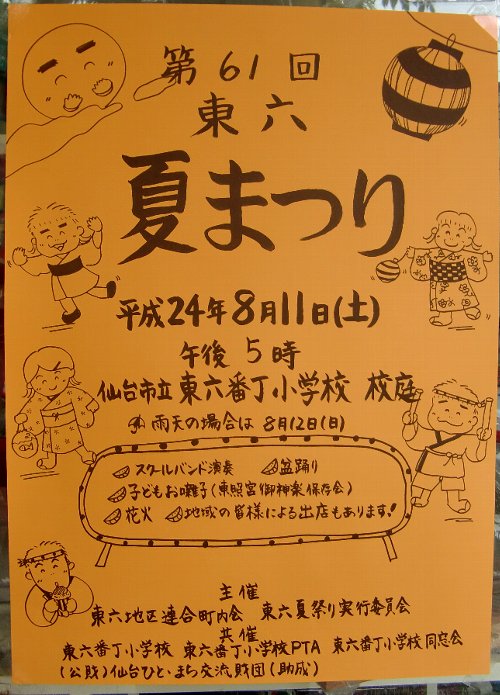 第61回
東六
夏まつり
平成24年8月11日(土)
午後5時
仙台市立東六番丁小学校 校庭
雨天の場合は 8月12日(日)
スクールバンド演奏 盆踊り
子どもお囃子(東照宮御神楽保存会)
花火 地域の皆様による出店もあります!
主催
東六地区連合町内会 東六夏祭り実行委員会
共催
東六番丁小学校 東六番丁小学校PTA 東六番丁小学校同窓会
(公財)仙台ひと・まち交流財団(助成)